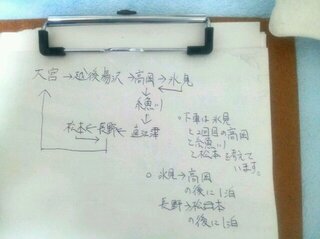 大宮→越後湯沢→高岡→氷見
↓
糸魚川
↓
松本←長野←直江津
○下車は氷見
と2回目の高岡
と糸魚川
と松本を考えて
います。
○氷見→高岡
の後に1泊
長野→松本
の後に1泊